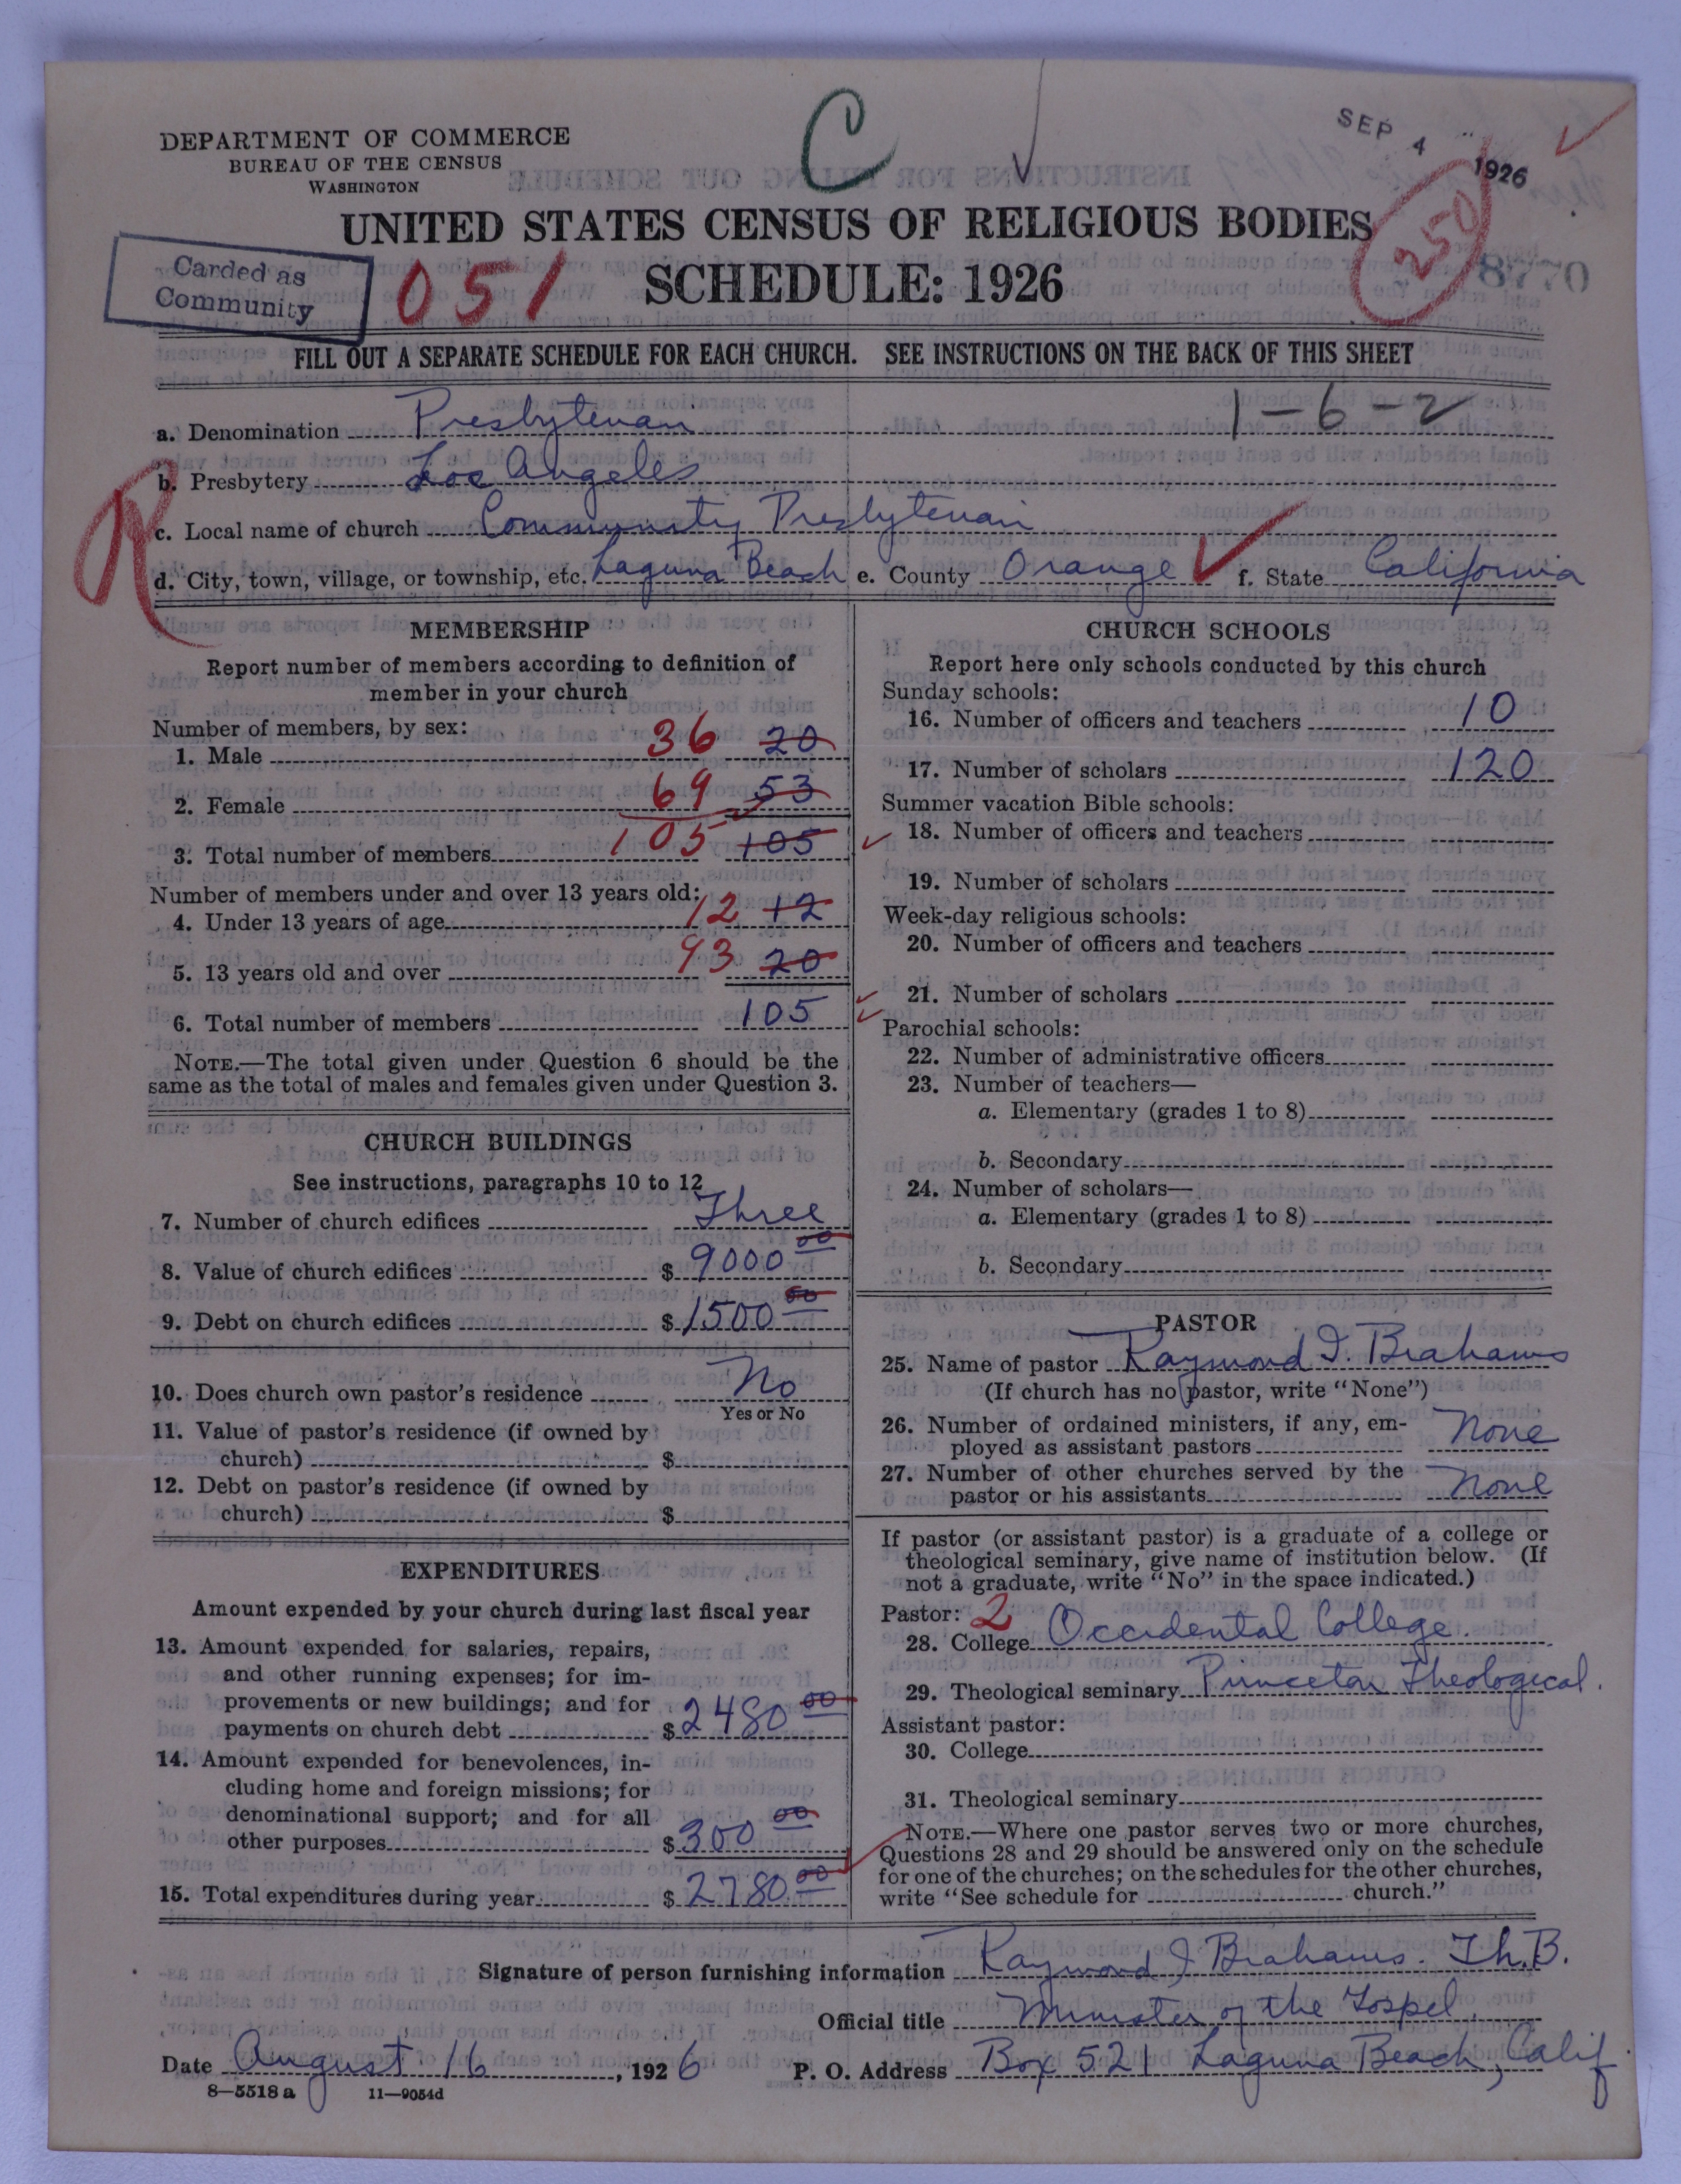 DEPARTMENT OF COMMERCE
BUREAU OF THE CENSUS
WASHINGTON
C
SEP 4 1926
250
8770
UNITED STATES CENSUS OF RELIGIOUS BODIES
SCHEDULE: 1926
Carded as
Community
051
FILL OUT A SEPARATE SCHEDULE FOR EACH CHURCH. SEE INSTRUCTIONS ON THE BACK OF THIS SHEET
1-6-2
R
a. Denomination Presbyterian
b. Presbytery Los Angeles
c. Local name of church Community Presbyterian
d. City, town, village, or township, etc. Laguna Beach e. County Orange f. State California
MEMBERSHIP
Report number of members according to definition of
member in your church
Number of members, by sex:
1. Male 36 20
2. Female 69 53
3. Total number of members 105 105
Number of members under and over 13 years old:
4. Under 13 years of age 12 12
5. 13 years old and over 93 20
6. Total number of members 105
NOTE.—The total given under Question 6 should be the
same as the total of males and females given under Question 3.
CHURCH BUILDINGS
See instructions, paragraphs 10 to 12
7. Number of church edifices Three
8. Value of church edifices $ 9000 00
9. Debt on church edifices $ 1500 00
10. Does church own pastor's residence No
Yes or No
11. Value of pastor's residence (if owned by
church) $
12. Debt on pastor's residence (if owned by
church) $
EXPENDITURES
Amount expended by your church during last fiscal year
13. Amount expended for salaries, repairs,
and other running expenses; for im-
provements or new buildings; and for
payments on church debt $ 2480 00
14. Amount expended for benevolences, in-
cluding home and foreign missions; for
denominational support; and for all
other purposes $ 300 00
15. Total expenditures during year $ 2780 00
CHURCH SCHOOLS
Report here only schools conducted by this church
Sunday schools:
16. Number of officers and teachers 10
17. Number of scholars 120
Summer vacation Bible schools:
18. Number of officers and teachers
19. Number of scholars
Week-day religious schools:
20. Number of officers and teachers
21. Number of scholars
Parochial schools:
22. Number of administrative officers
23. Number of teachers—
a. Elementary (grades 1 to 8)
b. Secondary
24. Number of scholars—
a. Elementary (grades 1 to 8)
b. Secondary
PASTOR
25. Name of pastor Raymond I. Brahams
(If church has no pastor, write "None")
26. Number of ordained ministers, if any, em-
ployed as assistant pastors None
27. Number of other churches served by the
pastor or his assistants None
If pastor (or assistant pastor) is a graduate of a college or
theological seminary, give name of institution below. (If
not a graduate, write "No" in the space indicated.)
Pastor: 2
28. College Occidental College.
29. Theological seminary Princeton Theological.
Assistant pastor:
30. College
31. Theological seminary
NOTE.—Where one pastor serves two or more churches,
Questions 28 and 29 should be answered only on the schedule
for one of the churches; on the schedules for the other churches,
write "See schedule for church."
Signature of person furnishing information Raymond I Brahams. Th.B.
Official title Minister of the Gospel.
Date August 16, 1926 P. O. Address Box 521 Laguna Beach, Calif
8—5518 a 11—9054d